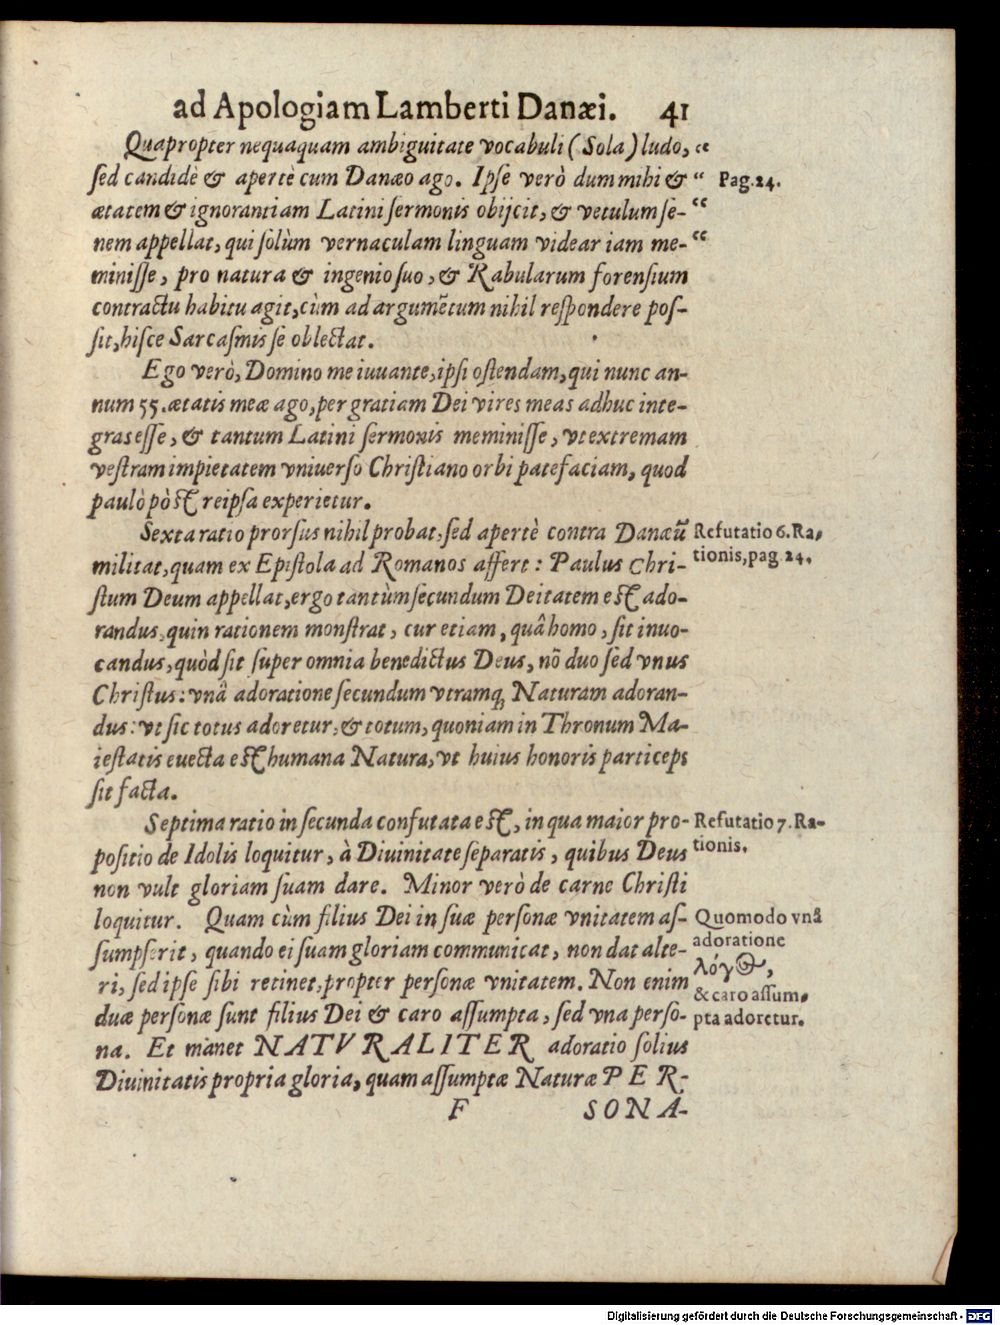 ad Apologiam Lamberti Danæi. 41
Quapropter nequaquam ambiguitate vocabuli (Sola) ludo, “
ſed candidè & apertè cum Danæo ago. Ipſe verò dum mihi & “ Pag. 24.
ætatem & ignorantiam Latini ſermonis obijcit, & vetulum ſe- “
nem appellat, qui ſolùm vernaculam linguam videar iam me- “
miniſſe, pro natura & ingenio ſuo, & Rabularum forenſium
contractu habitu agit, cùm ad argumẽtum nihil reſpondere poſ-
ſit, hiſce Sarcaſmis ſe oblectat.
Ego verò, Domino me iuuante, ipſi oſtendam, qui nunc an-
num 55. ætatis meæ ago, per gratiam Dei vires meas adhuc inte-
gras eſſe, & tantum Latini ſermonis meminiſſe, vt extremam
veſtram impietatem vniuerſo Chriſtiano orbi patefaciam, quod
paulò pòſt reipſa experietur.
Sexta ratio prorſus nihil probat, ſed apertè contra Danæũ
militat, quam ex Epiſtola ad Romanos affert: Paulus Chri-
ſtum Deum appellat, ergo tantùm ſecundum Deitatem eſt ado-
randus, quin rationem monſtrat, cur etiam, quâ homo, ſit inuo-
candus, quòd ſit ſuper omnia benedictus Deus, nõ duo ſed vnus
Chriſtus: vnâ adoratione ſecundum vtramq; Naturam adoran-
dus: vt ſic totus adoretur, & totum, quoniam in Thronum Ma-
ieſtatis euecta eſt humana Natura, vt huius honoris particeps
ſit facta.
Refutatio 6. Ra-
tionis, pag. 24.
Septima ratio in ſecunda confutata eſt, in qua maior pro-
poſitio de Idolis loquitur, à Diuinitate ſeparatis, quibus Deus
non vult gloriam ſuam dare. Minor verò de carne Chriſti
loquitur. Quam cùm filius Dei in ſuæ perſonæ vnitatem aſ-
ſumpſerit, quando ei ſuam gloriam communicat, non dat alte-
ri, ſed ipſe ſibi retinet, propter perſonæ vnitatem. Non enim
duæ perſonæ ſunt filius Dei & caro aſſumpta, ſed vna perſo-
na. Et manet NATVRALITER adoratio ſolius
Diuinitatis propria gloria, quam aſſumptæ Naturæ PER-
Refutatio 7. Ra-
tionis.
Quomodo vnâ
adoratione
λόγος,
& caro aſſum-
pta adoretur.
F SONA-
Digitalisierung gefördert durch die Deutsche Forschungsgemeinschaft - DFG